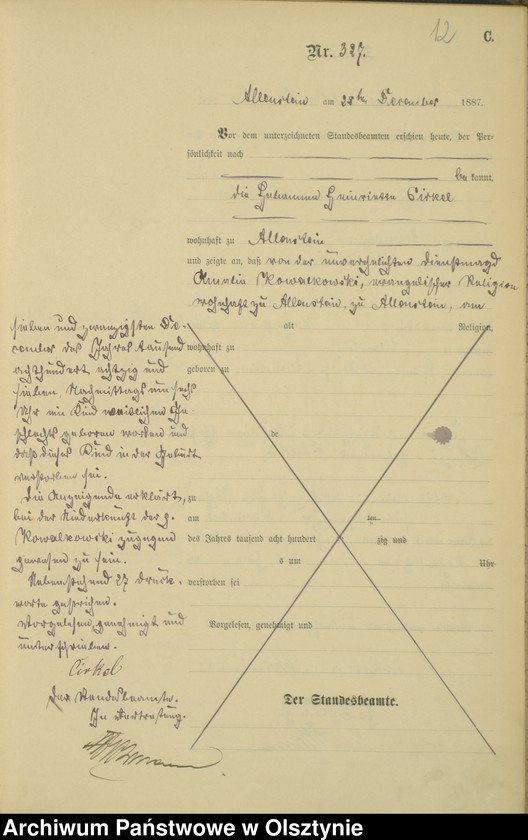 12
C.
Nr. 327.
Allenstein am 28ten December 1887.
Vor dem unterzeichneten Standesbeamten erschien heute, der Per-
sönlichkeit nach
bekannt,
die Hebamme Henriette Cirkel
wohnhaft zu Allenstein
und zeigte an, daß von der unverehelichten Dienstmagd
Amalie Kowalkowski, evangelischer Religion
wohnhaft zu Allenstein, zu Allenstein, am
sieben und zwanzigsten De-
cember des Jahres tausend
achthundert achtzig und
sieben Nachmittags um sechs
Uhr ein Kind weiblichen Ge-
schlechts geboren worden und
daß dieses Kind in der Geburt
verstorben sei.
Die Anzeigende erklärt,
bei der Niederkunft der p.
Kowalkowski zugegen
gewesen zu sein.
Nebenstehend 27 Druck-
worte gestrichen.
Vorgelesen, genehmigt und
unterschrieben.
Cirkel
Der Standesbeamte.
In Vertretung.
alt Religion,
wohnhaft zu
geboren zu
de
zu
am ten
des Jahres tausend acht hundert zig und
s um Uhr
verstorben sei
Vorgelesen, genehmigt und
Der Standesbeamte.
Archiwum Państwowe w Olsztynie